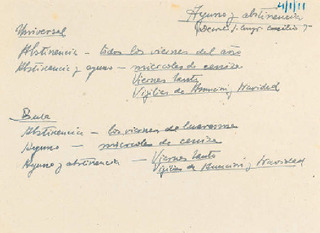 Ayuno y abstinencia
Universal
Abstinencia – todos los viernes del año
Abstinencia y ayuno – miércoles de ceniza
Viernes Santo
Vigilias de Asunción y Navidad
Bula
Abstinencia – los viernes de cuaresma
Ayuno – miércoles de ceniza
Ayuno y abstinencia – Viernes Santo
Vigilias de Asunción y Navidad